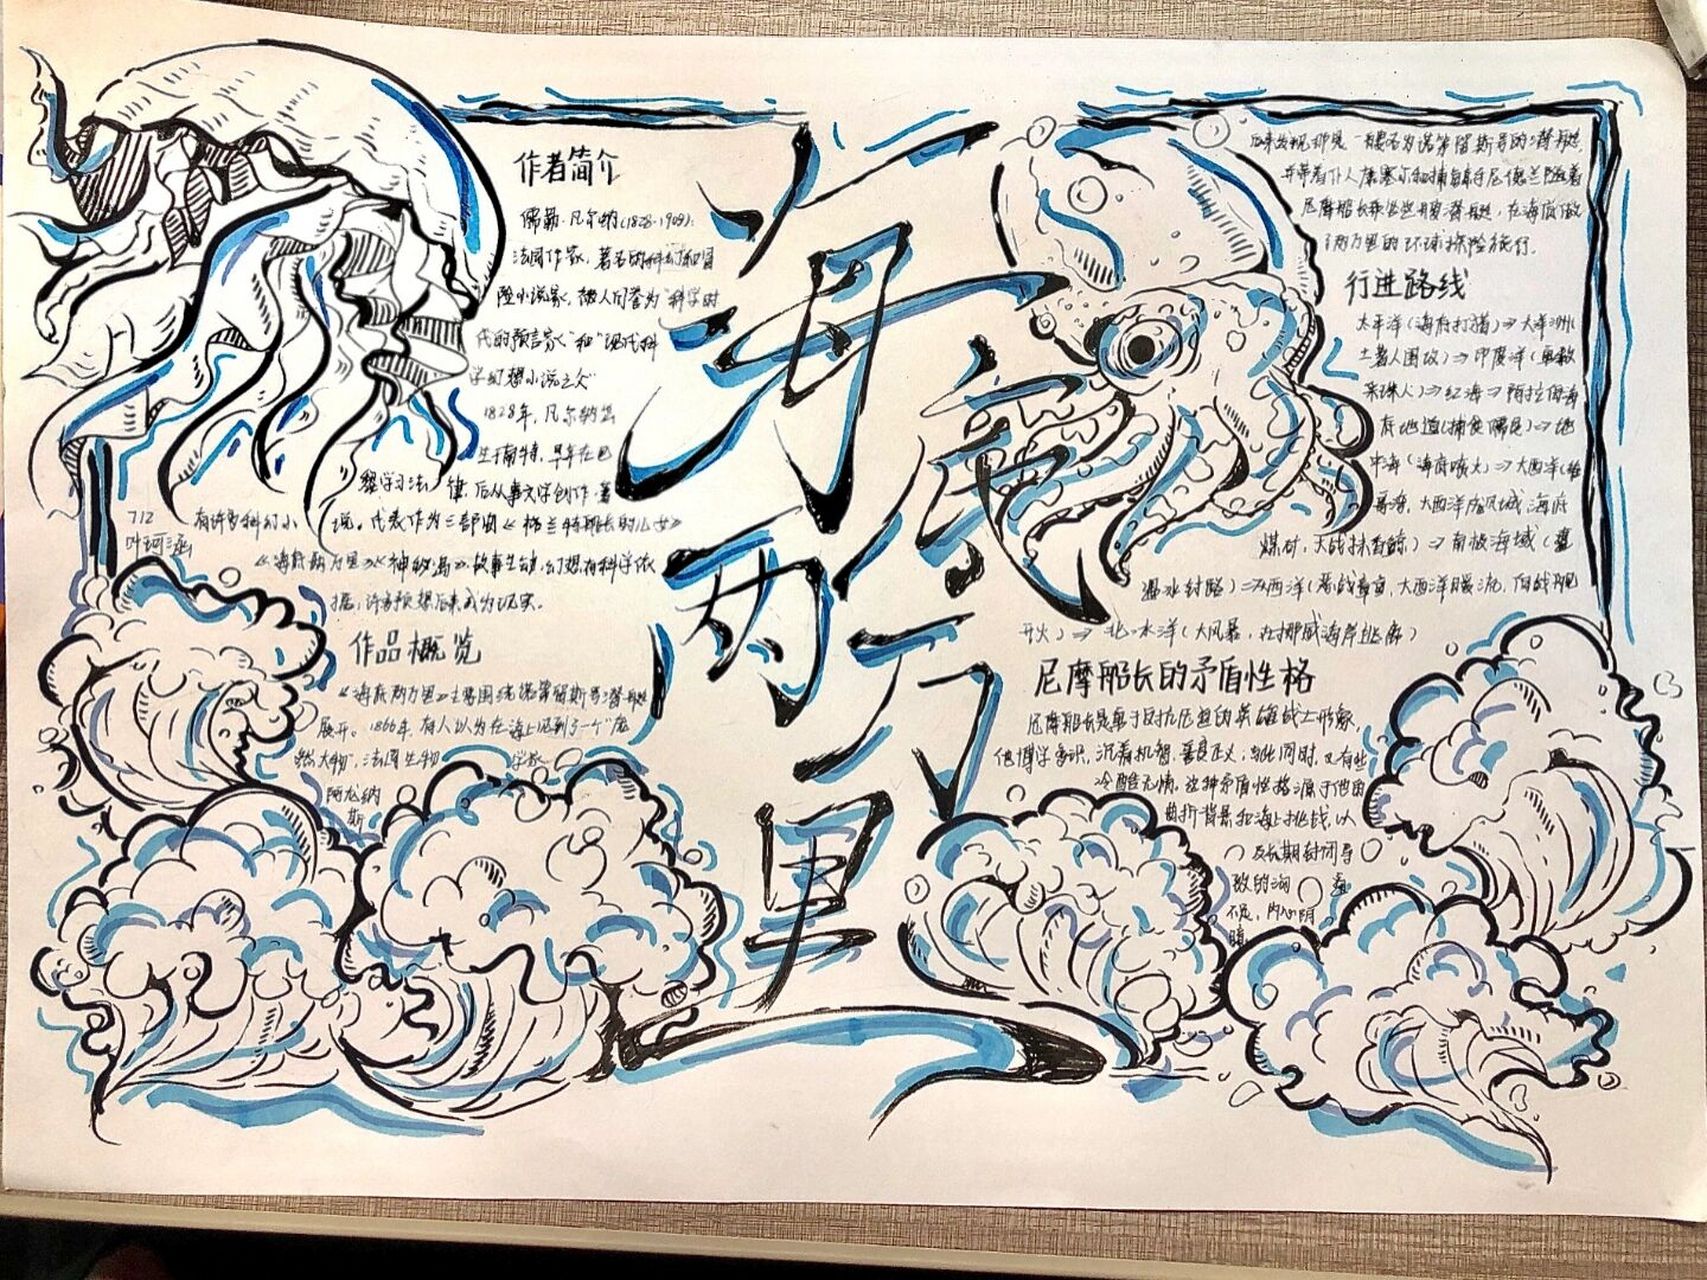 海底两万里
作者简介
儒勒·凡尔纳(1828-1905):
法国作家，著名的科幻和冒
险小说家，被人们誉为“科学时
代的预言家”和“现代科
学幻想小说之父”
1828年，凡尔纳出
生于南特，早年在巴
黎学习法律，后从事文学创作，著
有许多科幻小说。代表作为三部曲《格兰特船长的儿女》
《海底两万里》《神秘岛》，故事生动，幻想有科学依
据，许多预想后来成为现实。
712
叶珂涵
作品概览
《海底两万里》主要围绕诺第留斯号潜艇
展开。1866年，有人以为在海上见到了一个“庞
然大物”，法国生物学家
阿龙纳
斯
后来发现那是一艘名为诺第留斯号的潜艇，
并带着仆人康塞尔和捕鲸手尼德兰随着
尼摩船长乘坐这艘潜艇，在海底做
了两万里的环球探险旅行。
行进路线
太平洋(海底打猎)⇒大洋洲(
土著人围攻)⇒印度洋(勇救
采珠人)⇒红海⇒阿拉伯海
底地道(捕食儒艮)⇒地
中海(海底喷火)⇒大西洋(维
哥湾，大西洋底沉城，海底
煤矿，大战抹香鲸)⇒南极海域(
冰封路)⇒大西洋(恶战章鱼，大西洋暖流，
开火)⇒北冰洋(大风暴，在挪威海岸逃脱)
尼摩船长的矛盾性格
尼摩船长是勇于对抗压迫的英雄战士形象，
他博学多识，沉着机智，善良正义，与此同时，又有些
冷酷无情。这种矛盾性格源于他曲
曲折背景和海上挑战，以
及长期封闭导
致的沟
不良，内心阴
暗